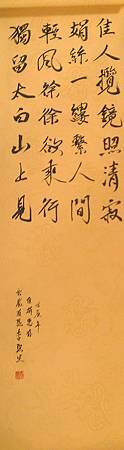 佳人攬鏡照清寂
娟絲一縷繫人間
輕風徐徐欲乘行
獨留太白山上見